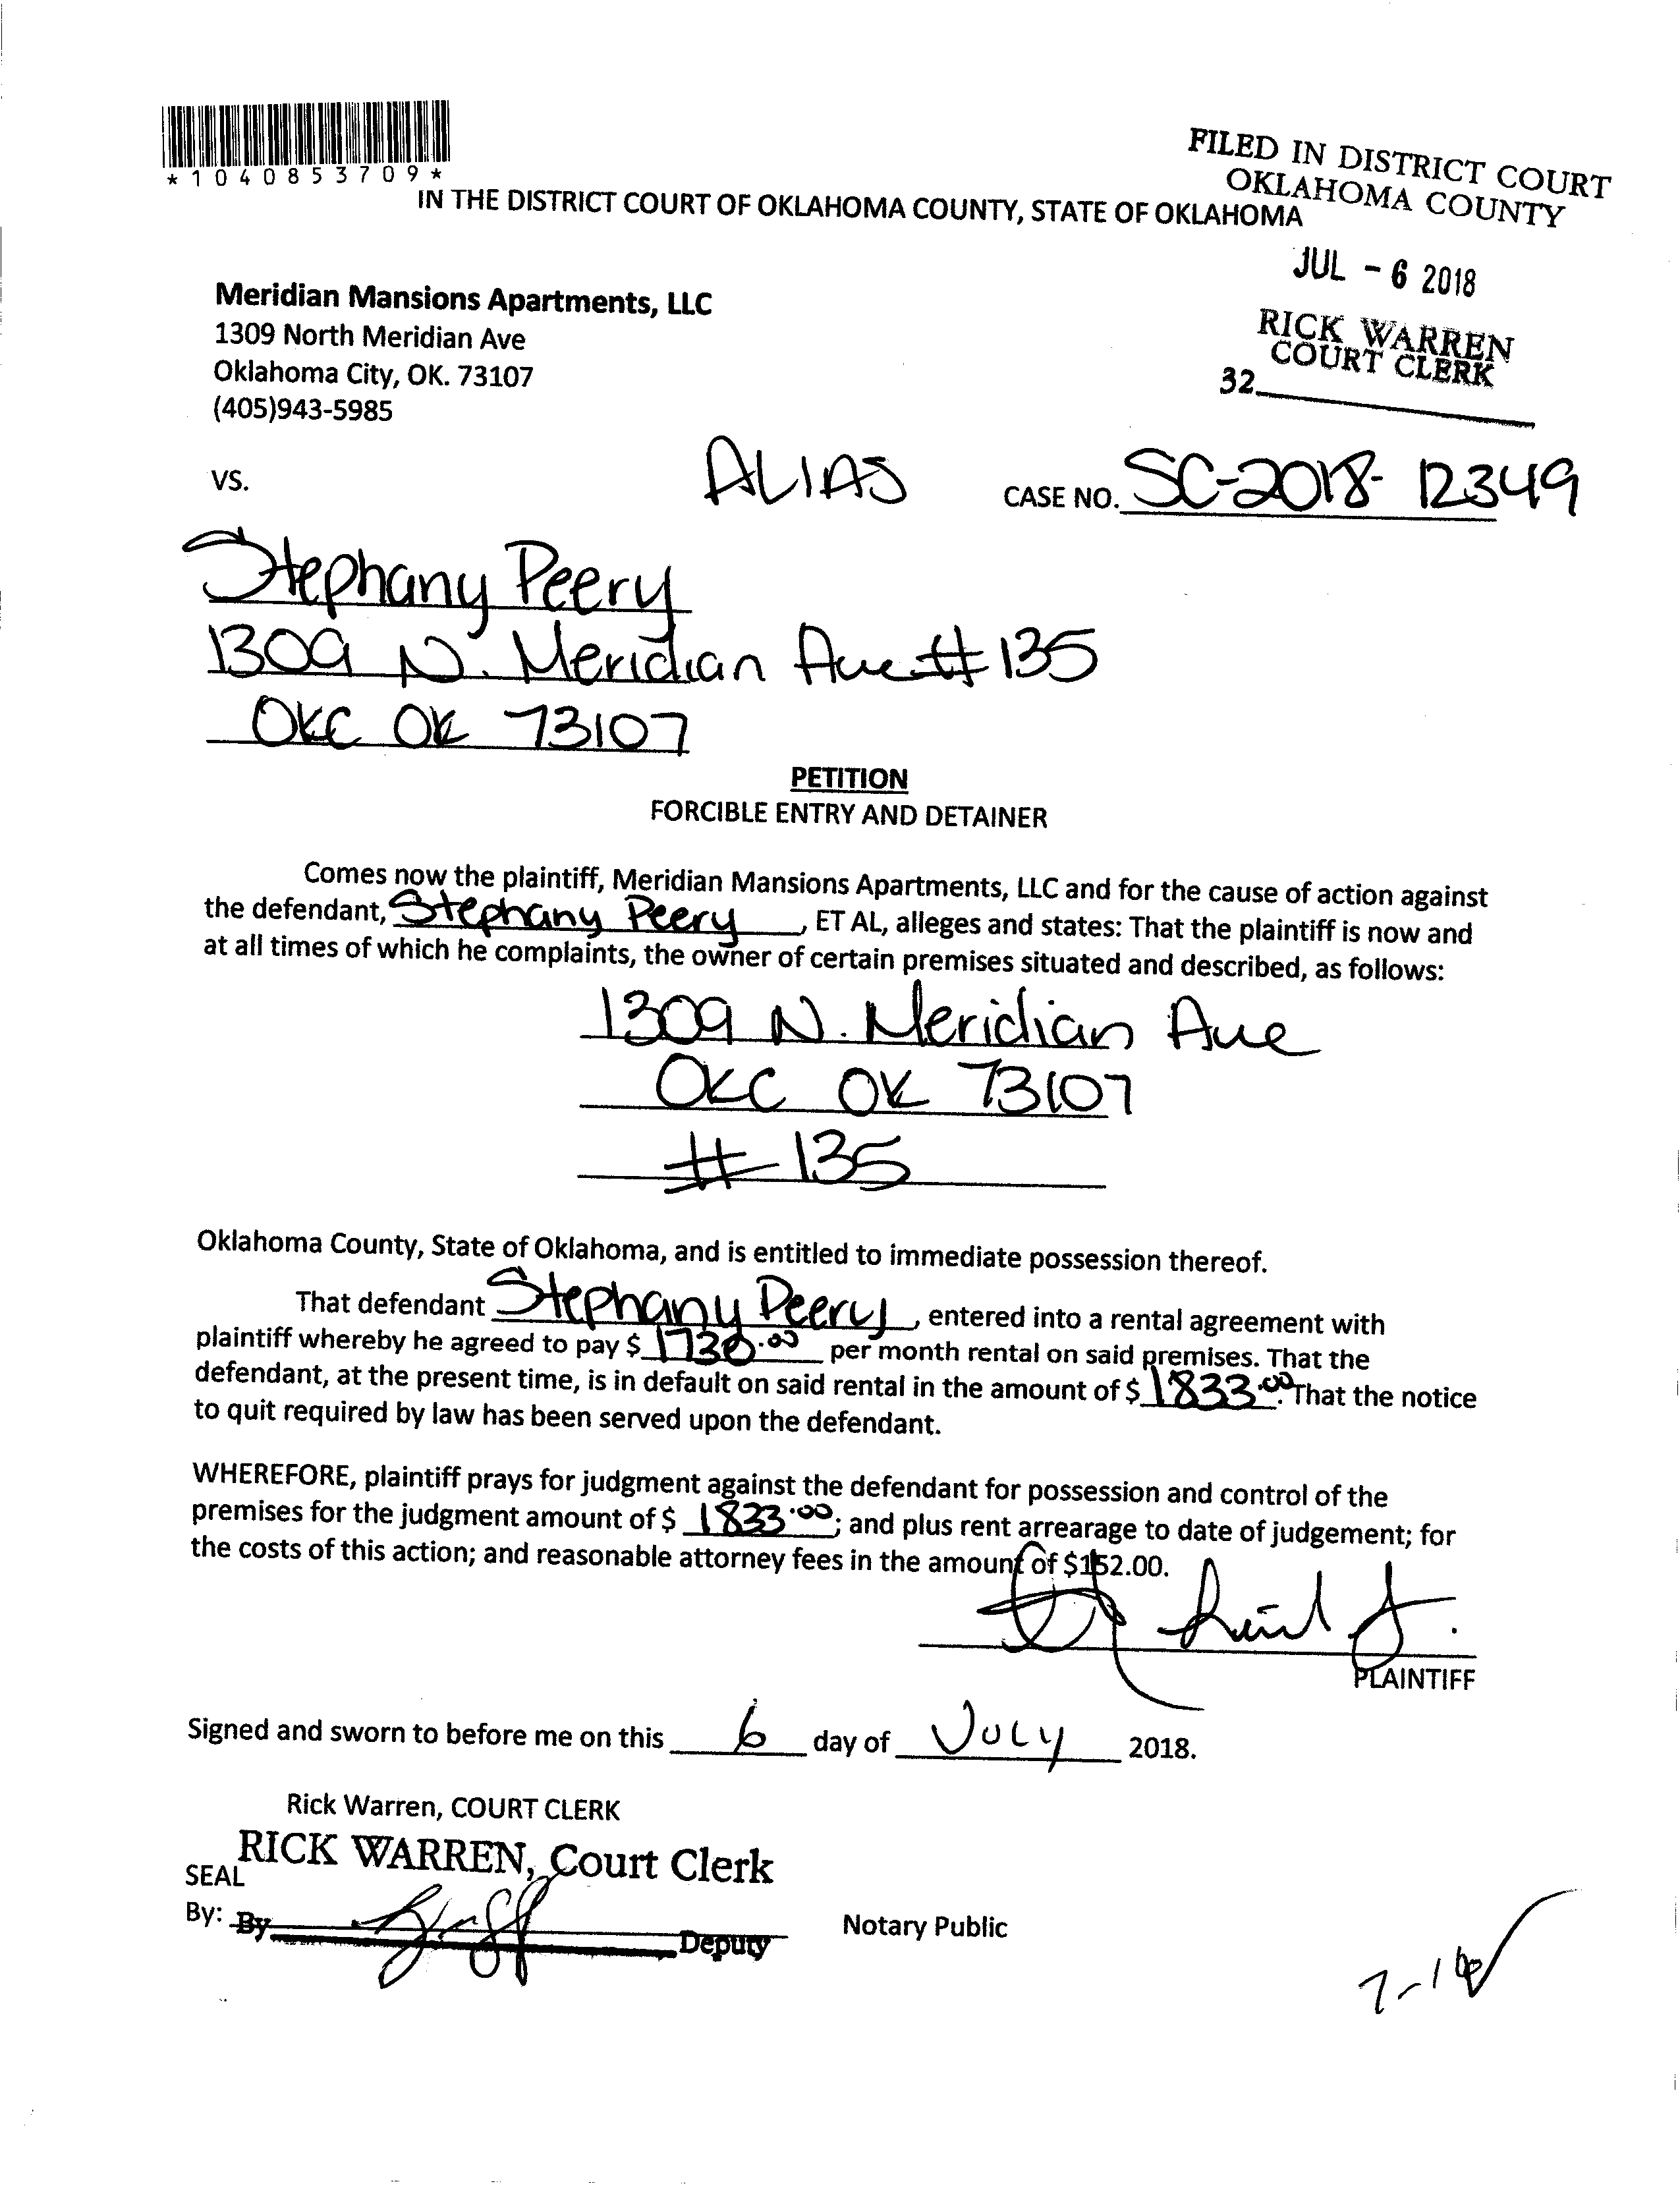 *1040853709*
FILED IN DISTRICT COURT
OKLAHOMA COUNTY
IN THE DISTRICT COURT OF OKLAHOMA COUNTY, STATE OF OKLAHOMA
JUL - 6 2018
RICK WARREN
COURT CLERK
32
Meridian Mansions Apartments, LLC
1309 North Meridian Ave
Oklahoma City, OK. 73107
(405)943-5985
VS.
ALIAS
CASE NO. SC-2018-12349
Stephany Peery
1309 N. Meridian Ave # 135
OKC OK 73107
PETITION
FORCIBLE ENTRY AND DETAINER
Comes now the plaintiff, Meridian Mansions Apartments, LLC and for the cause of action against
the defendant, Stephany Peery, ET AL, alleges and states: That the plaintiff is now and
at all times of which he complaints, the owner of certain premises situated and described, as follows:
1309 N. Meridian Ave
OKC OK 73107
# 135
Oklahoma County, State of Oklahoma, and is entitled to immediate possession thereof.
That defendant Stephany Peery, entered into a rental agreement with
plaintiff whereby he agreed to pay $ per month rental on said premises. That the
defendant, at the present time, is in default on said rental in the amount of $ 1833.00. That the notice
to quit required by law has been served upon the defendant.
WHEREFORE, plaintiff prays for judgment against the defendant for possession and control of the
premises for the judgment amount of $ 1833.00; and plus rent arrearage to date of judgement; for
the costs of this action; and reasonable attorney fees in the amount of $152.00.
PLAINTIFF
Signed and sworn to before me on this 6 day of JULY 2018.
Rick Warren, COURT CLERK
RICK WARREN, Court Clerk
SEAL
By: By Deputy
Notary Public